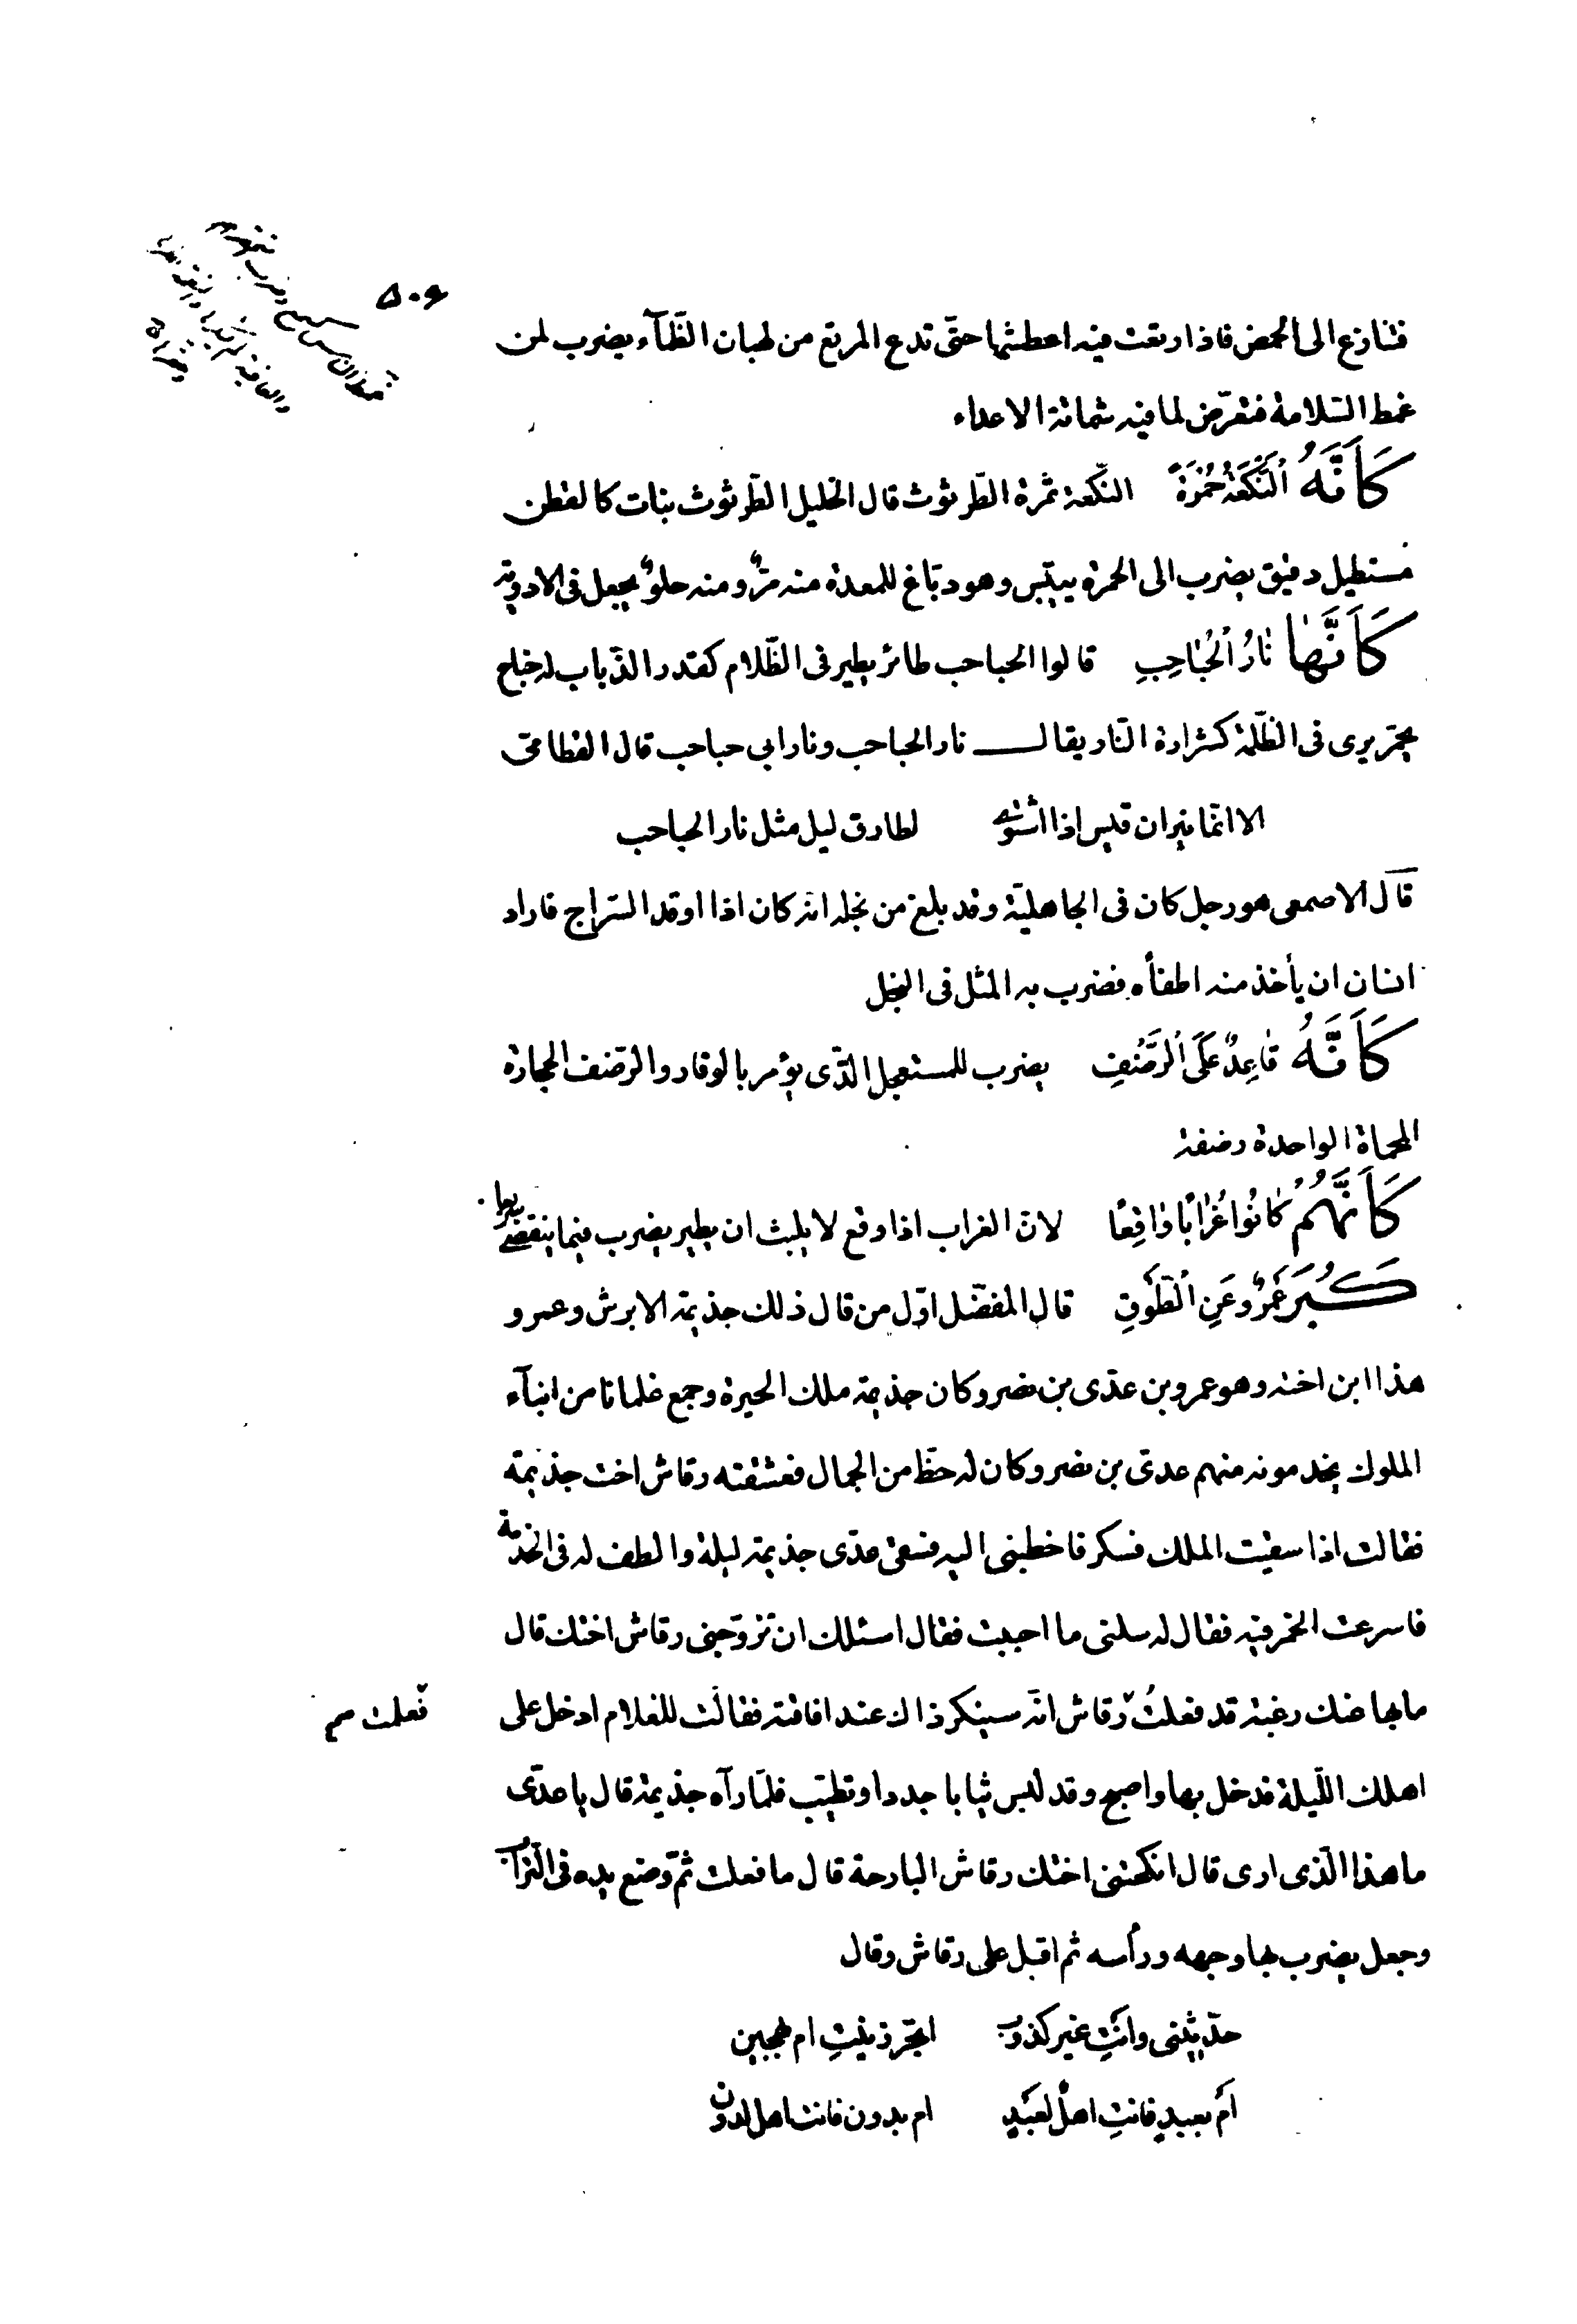 ٥٠٦
فتنازع الى الحمض فاذا رتعت فيه اعطشها حتّى تدع المرتع من لهبان الظّمآء يضرب لمن
غمط السّلامة فتعرّض لما فيه شماتة الاعداء
كَأَنَّهُ النَّكَعَةُ حُمْرَةً النّكعة ثمرة الطّرثوث قال الخليل الطّرثوث نبات كالقطن
مستطيل دقيق يضرب الى الحمرة ييبّس وهو دبّاغ للمعدة منه مرٌّ ومنه حلوٌ يجعل فى الادوية
كَأَنَّها نارُ الْحُباحِبِ قالوا الحباحب طائر يطير فى الظّلام كقدر الذّباب له جناح
يحمّر يرى فى الظّلمة كشرارة النّار يقال نار الحباحب ونار ابى حباحب قال القطامىّ
الا انّما نيران قيس اذا اشتووا لطارق ليل مثل نار الحباحب
قال الاصمعى هو رجل كان فى الجاهليّة وقد بلغ من بخله انه كان اذا اوقد السّراج فاراد
انسان ان يأخذ منه اطفأه فضرب به المثل فى البخل
كَأَنَّهُ قاعِدٌ عَلَى الرَّضْفِ يضرب للمستعجل الذّى يؤمر بالوقار والرّضف الحجارة
المحماة الواحدة رضفة
كَأَنَّهُمْ كانُوا غُرابًا واقِعًا لانّ الغراب اذا وقع لا يلبث ان يطير يضرب فيما ينقضى سريعا
كَبُرَ عَمْرٌو عَنِ الطَّوْقِ قال المفضّل اوّل من قال ذلك جذيمة الابرش وعمرو
هذا ابن اخته وهو عمرو بن عدّى بن نضر وكان جذيمة ملك الحيرة وجمع غلمانا من ابنآء
الملوك يخدمونه منهم عدىّ بن نضر وكان له حظّ من الجمال فعشقته رقاش اخت جذيمة
فقالت اذا سقيت الملك فسكر فاخطبنى اليه فسقى عدّى جذيمة ليلة والطف له فى الخدمة
فاسرعت الخمر فيه فقال له سلنى ما احببت فقال اسئلك ان تزوّجنى رقاش اختك قال
ما بها عنك رغبة قد فعلتُ رقاش انّه سينكر ذاك عند افاقته فقالت للغلام ادخل على
فعلمت
اهلك اللّيلة فدخل بها واصبح وقد لبس ثيابا جددا وتطيّب فلمّا رآه جذيمة قال يا عدّى
ما هذا الّذى ارى قال انكحتنى اختك رقاش البارحة قال ما فعلت ثمّ وضع يده فى التّراب
وجعل يضرب بها وجهه ورأسه ثم اقبل على رقاش وقال
حدّثينى وانتِ غير كذوب ابحّر زنيتِ ام بهجين
ام بعبيدٍ فانتِ اهلٌ لعبيدٍ ام بدون فانت اهل لدون